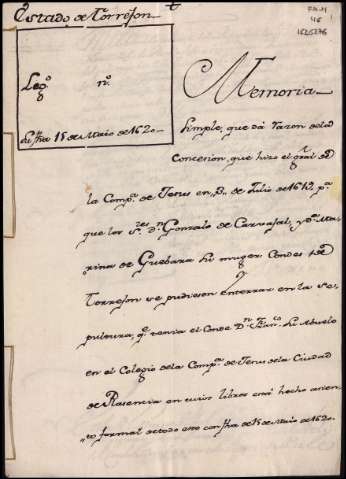 Estado de Torrejon
Leg.º n.º
Su fha 15 de Maio de 1620
Memoria
Simple, que dá razon de la
Concesion, que hizo el gral de
la Comp.ª de Jesus en de Julio de 1612, p.ª
que los S.res D.n Gonzalo de Carvajal, y D.ª Ma,,
rina de Guebara su muger Condes de
Torrejon se pudiesen enterrar en la se,,
pultura, q.e tenia el Conde D.n Fran.co su Abuelo
en el Colegio de la Comp.ª de Jesus de la Ciudad
de Plasencia en cuios libros está hecho asien,,
to formal a todo esto con fha de 15 de Maio de 1620.